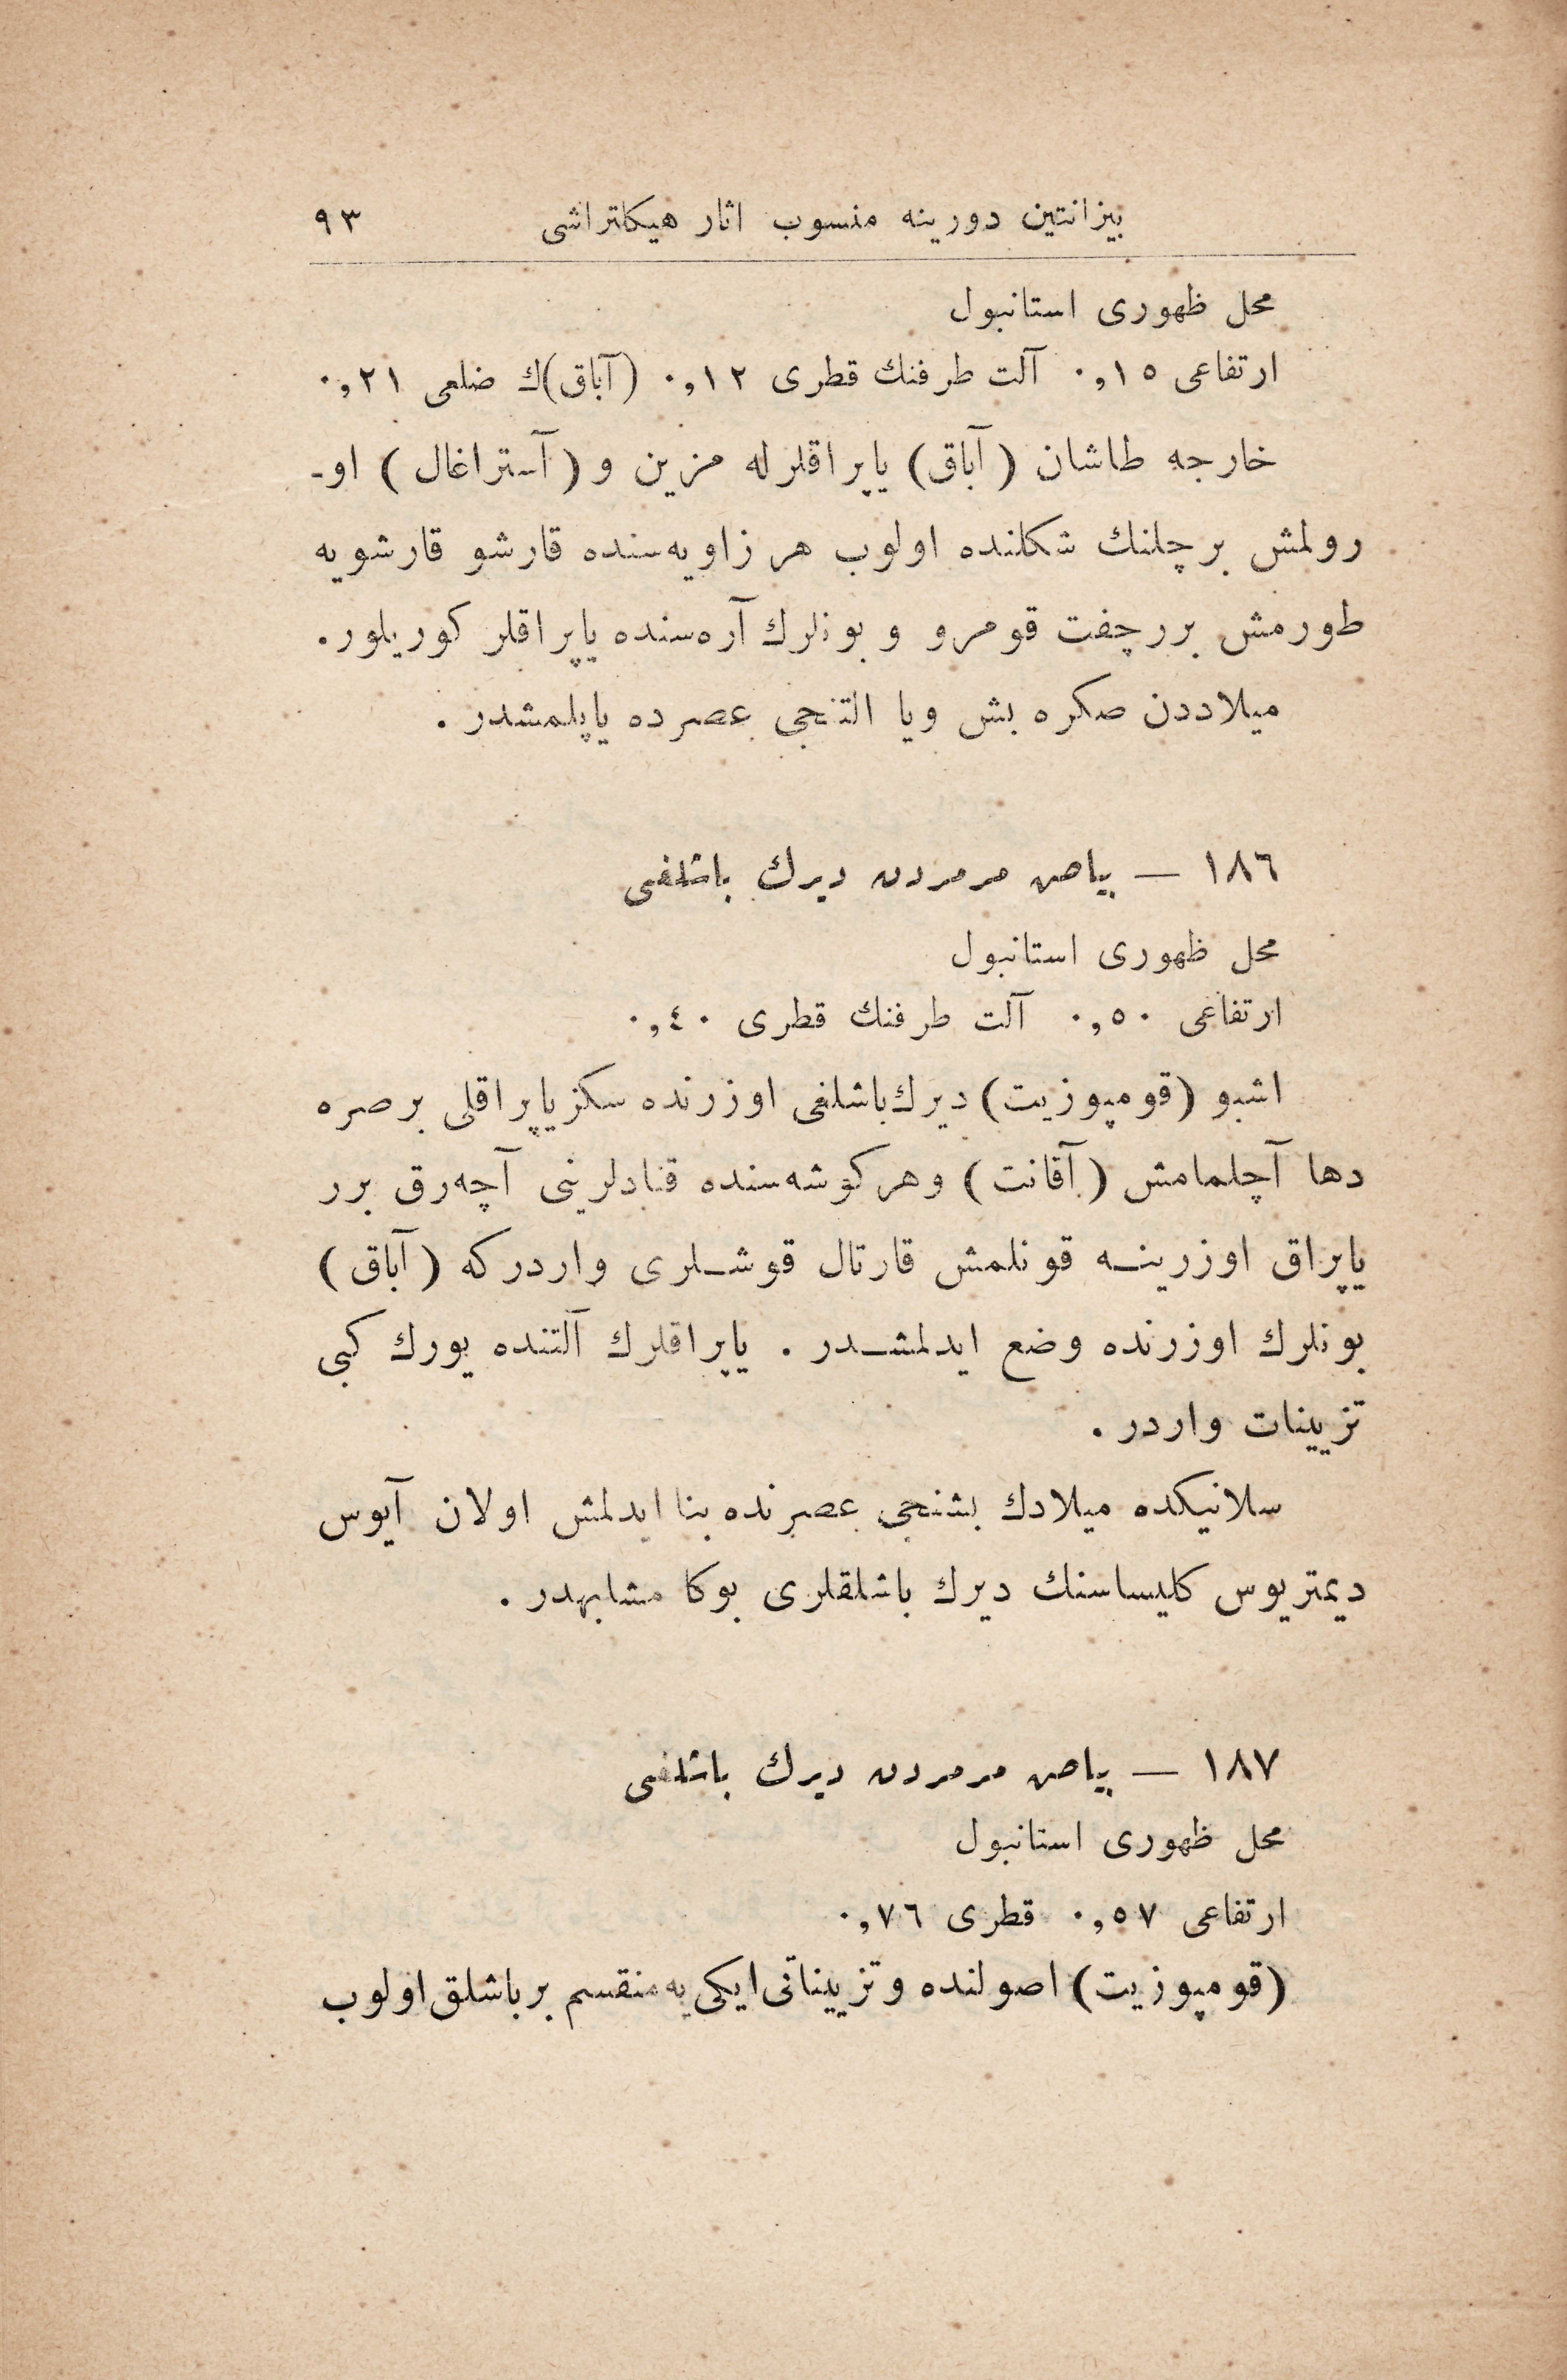 بيزانتين دورينه منسوب اثار هيكلتراشى ٩٣
محل ظهورى استانبول
ارتفاعى ٠,١٥ آلت طرفنك قطرى ٠,١٢ (آباق)ك ضلعى ٠,٢١
خارجه طاشان (آباق) ياپراقلرله مزين و (آستراغال) او-
رولمش بر چلنك شكلنده اولوب هر زاويه‌سنده قارشو قارشويه
طورمش برر چفت قومرو و بونلرك آره‌سنده ياپراقلر كوريلور.
ميلاددن صكره بش ويا التنجى عصرده ياپلمشدر .
١٨٦ — بياض مرمردن ديرك باشلغى
محل ظهورى استانبول
ارتفاعى ٠,٥٠ آلت طرفنك قطرى ٠,٤٠
اشبو (قومپوزيت) ديرك باشلغى اوزرنده سكز ياپراقلى بر صره
دها آچلمامش (آقانت) و هر كوشه‌سنده قنادلرينى آچه‌رق برر
ياپراق اوزرينه قونلمش قارتال قوشلرى واردركه (آباق)
بونلرك اوزرنده وضع ايدلمشدر . ياپراقلرك آلتنده يورك كبى
تزيينات واردر .
سلانيكده ميلادك بشنجى عصرنده بنا ايدلمش اولان آيوس
ديمتريوس كليساسنك ديرك باشلقلرى بوكا مشابهدر .
١٨٧ — بياض مرمردن ديرك باشلغى
محل ظهورى استانبول
ارتفاعى ٠,٥٧ قطرى ٠,٧٦
(قومپوزيت) اصولنده و تزييناتى ايكى‌يه منقسم بر باشلق اولوب